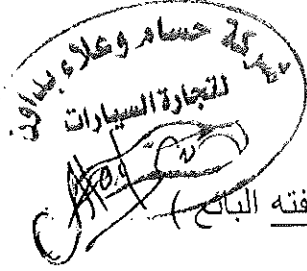 شركة حسام وعلاء بدافة
لتجارة السيارات
فته البائع )